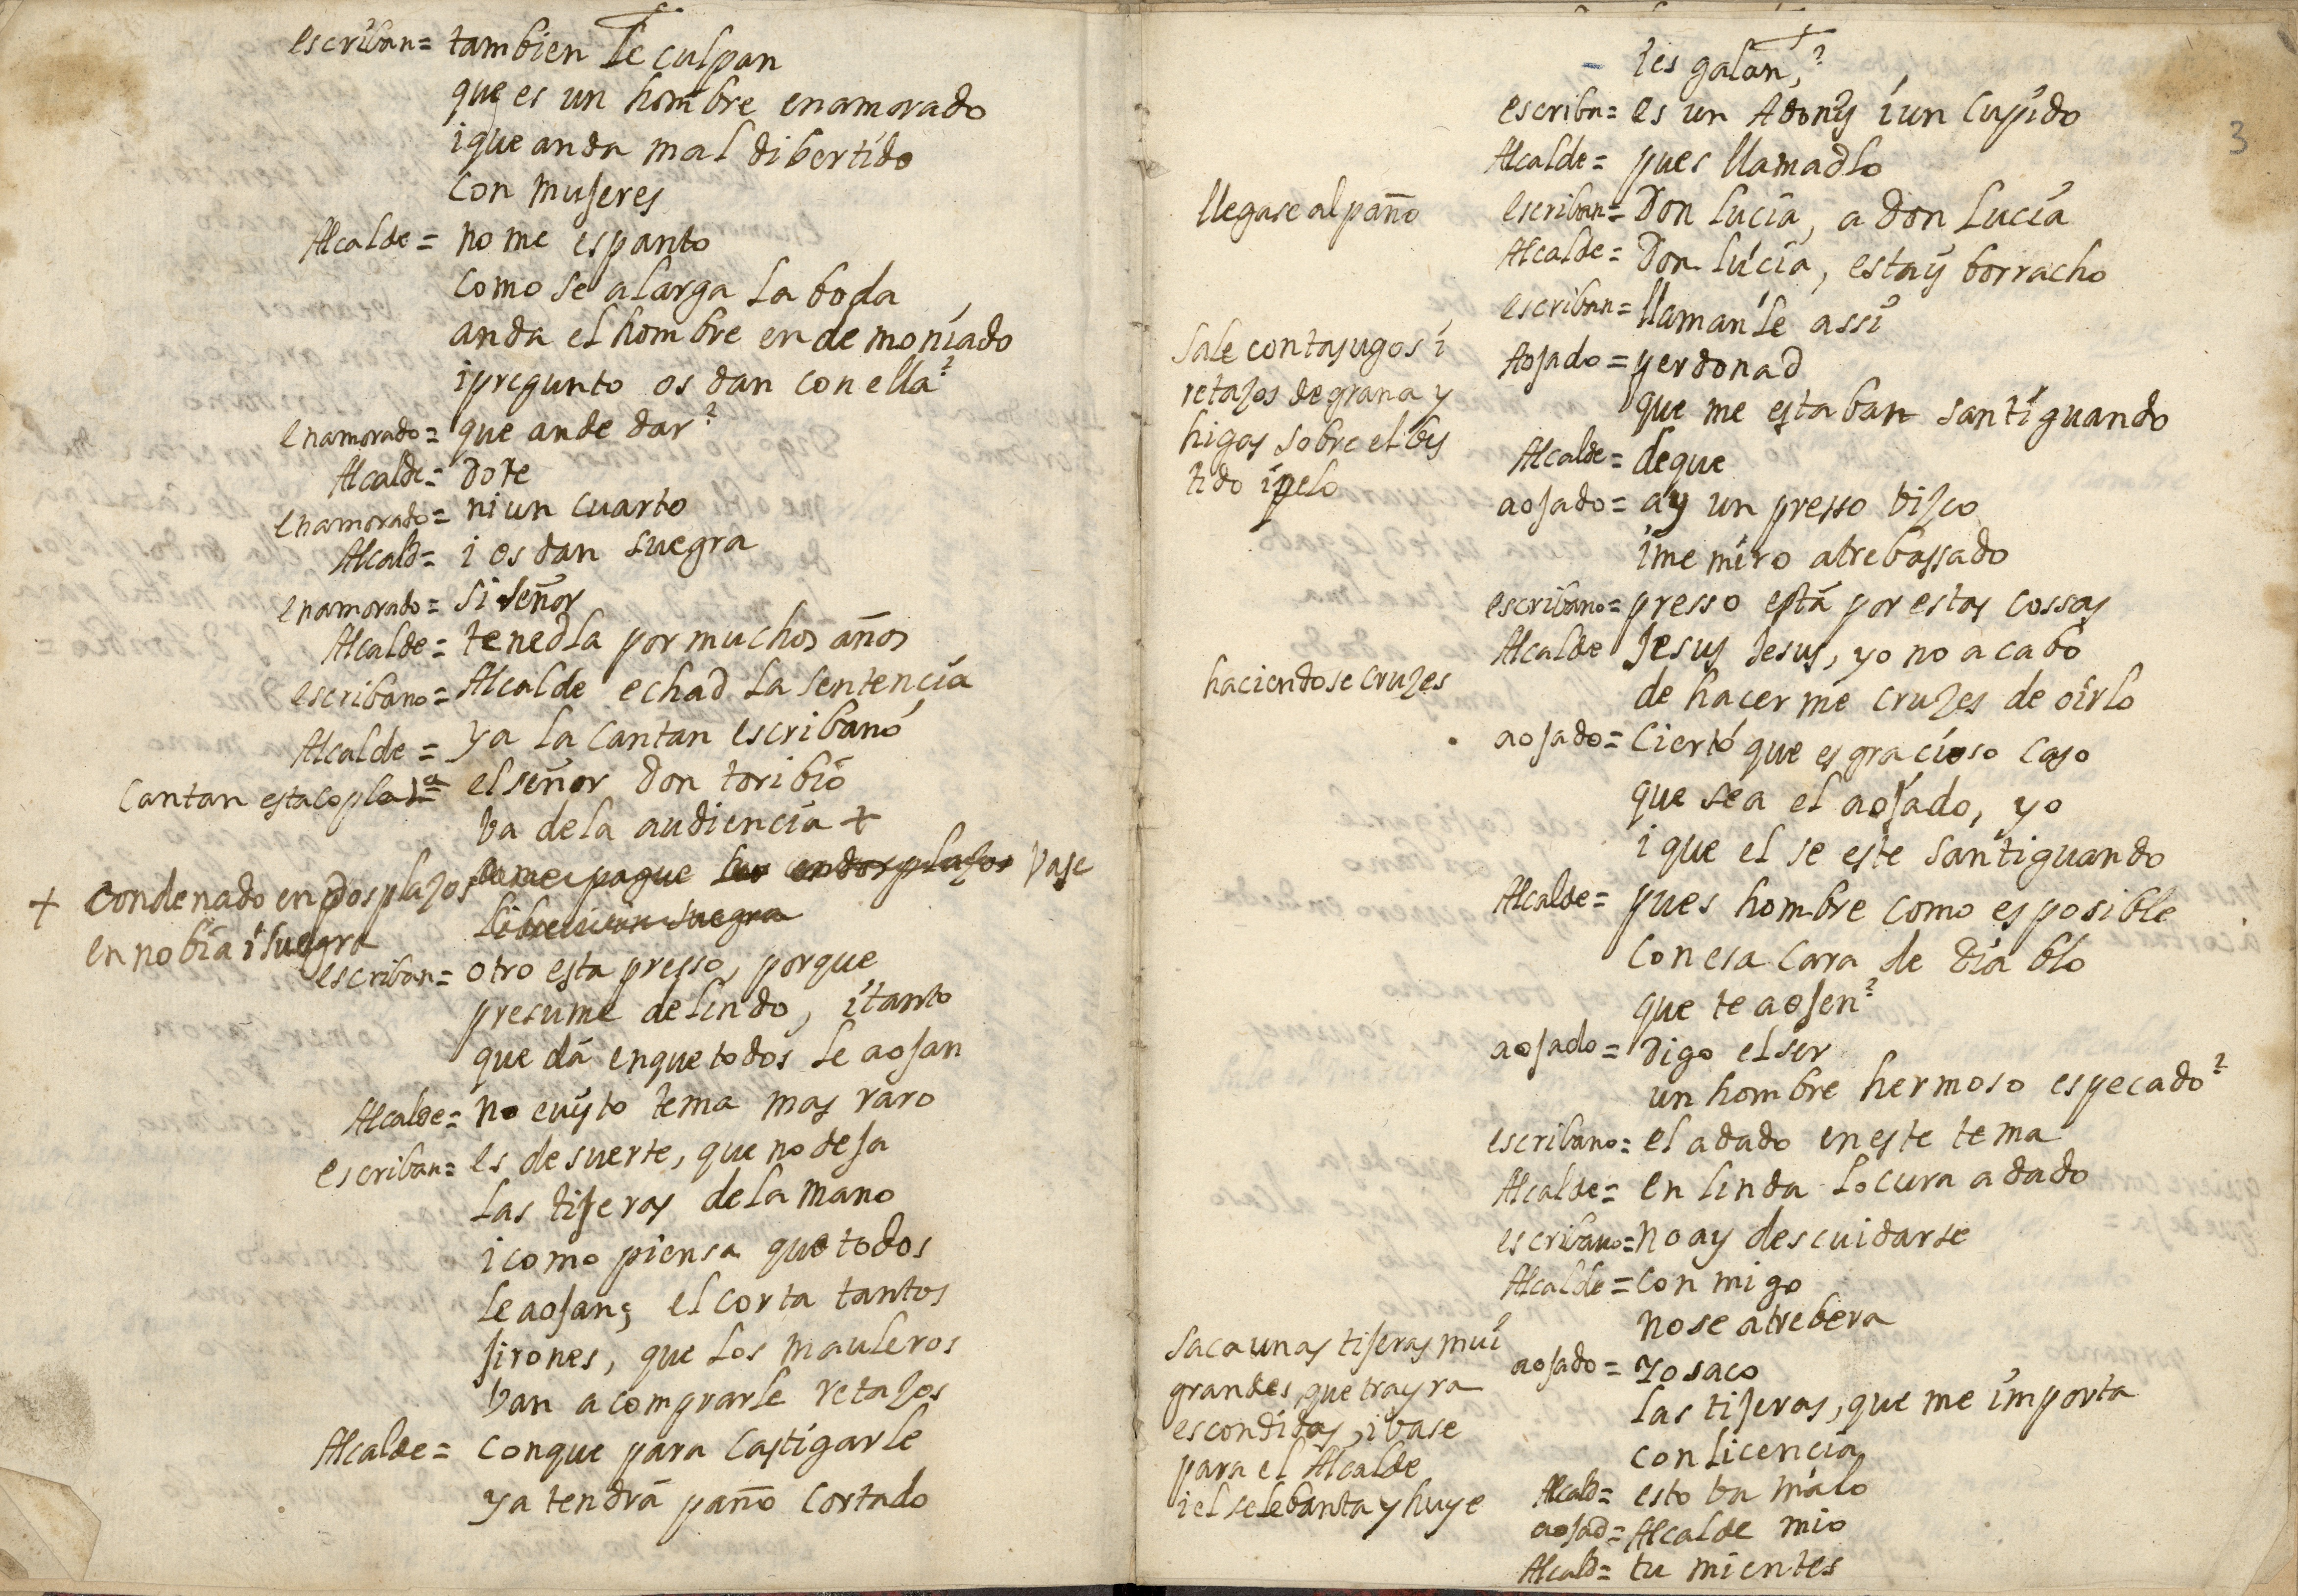 escriban= tambien le culpan
que es un hombre enamorado
i que anda mal dibertido
con mujeres
Alcalde= no me espanto
como se alarga la boda
anda el hombre endemoniado
i pregunto os dan con ella?
enamorado= que ande dar?
Alcalde= dote
enamorado= ni un cuarto
Alcald= i os dan suegra
enamorado= si señor
Alcalde= tenedla por muchos años
escribano= Alcalde echad la sentencia
Alcalde= ya la cantan escribano
cantan esta copla 1ª= el señor don toribio
ba de la audiencia +
+ condenado en dos plazos
en nobia i suegra
pague en dos plazos vase
suegra
escriban= otro esta presso, porque
presume de lindo, i tanto
que dá en que todos le aojan
Alcalde= no e uisto tema mas raro
escriban= es de suerte, que no deja
las tijeras de la mano
i como piensa que todos
le aojan; el corta tantos
jirones, que los mauleros
ban a comprarle retazos
Alcalde= conque para castigarle
ya tendrá paño cortado
3
i es galan,?
escriba= es un Adonis i un cupido
Alcalde= pues llamadlo
llegase al paño
escriban= Don lucia, a don Lucia
Alcalde= Don lucia, estays borracho
escriban= llamanle assi
sale con tajugos i
retazos de grana y
higas sobre el bes
tido i pelo
Aojado= perdonad
que me estaban santiguando
Alcalde= de que
aojado= ay un presso bizco
i me miro atrebassado
escribano= presso está por estas cossas
haciendose cruzes
Alcalde Jesus Jesus, yo no acabo
de hacerme cruzes de oirlo
aojado= cierto que es gracioso caso
que sea el aojado, yo
i que el se este santiguando
Alcalde= pues hombre como es posible
con esa cara de diablo
que te aojen?
aojado= digo el ser
un hombre hermoso es pecado?
escribano= el a dado en este tema
Alcalde= en linda locura a dado
escribano= no ay descuidarse
Alcalde= con migo
no se atrebera
saca unas tijeras mui
grandes que trayra
escondidas, i vase
para el Alcalde
i el se lebanta y huye
aojado= yo saco
las tijeras, que me importa
con licencia
Alcald= esto ba malo
aojad= Alcalde mio
Alcald= tu mientes